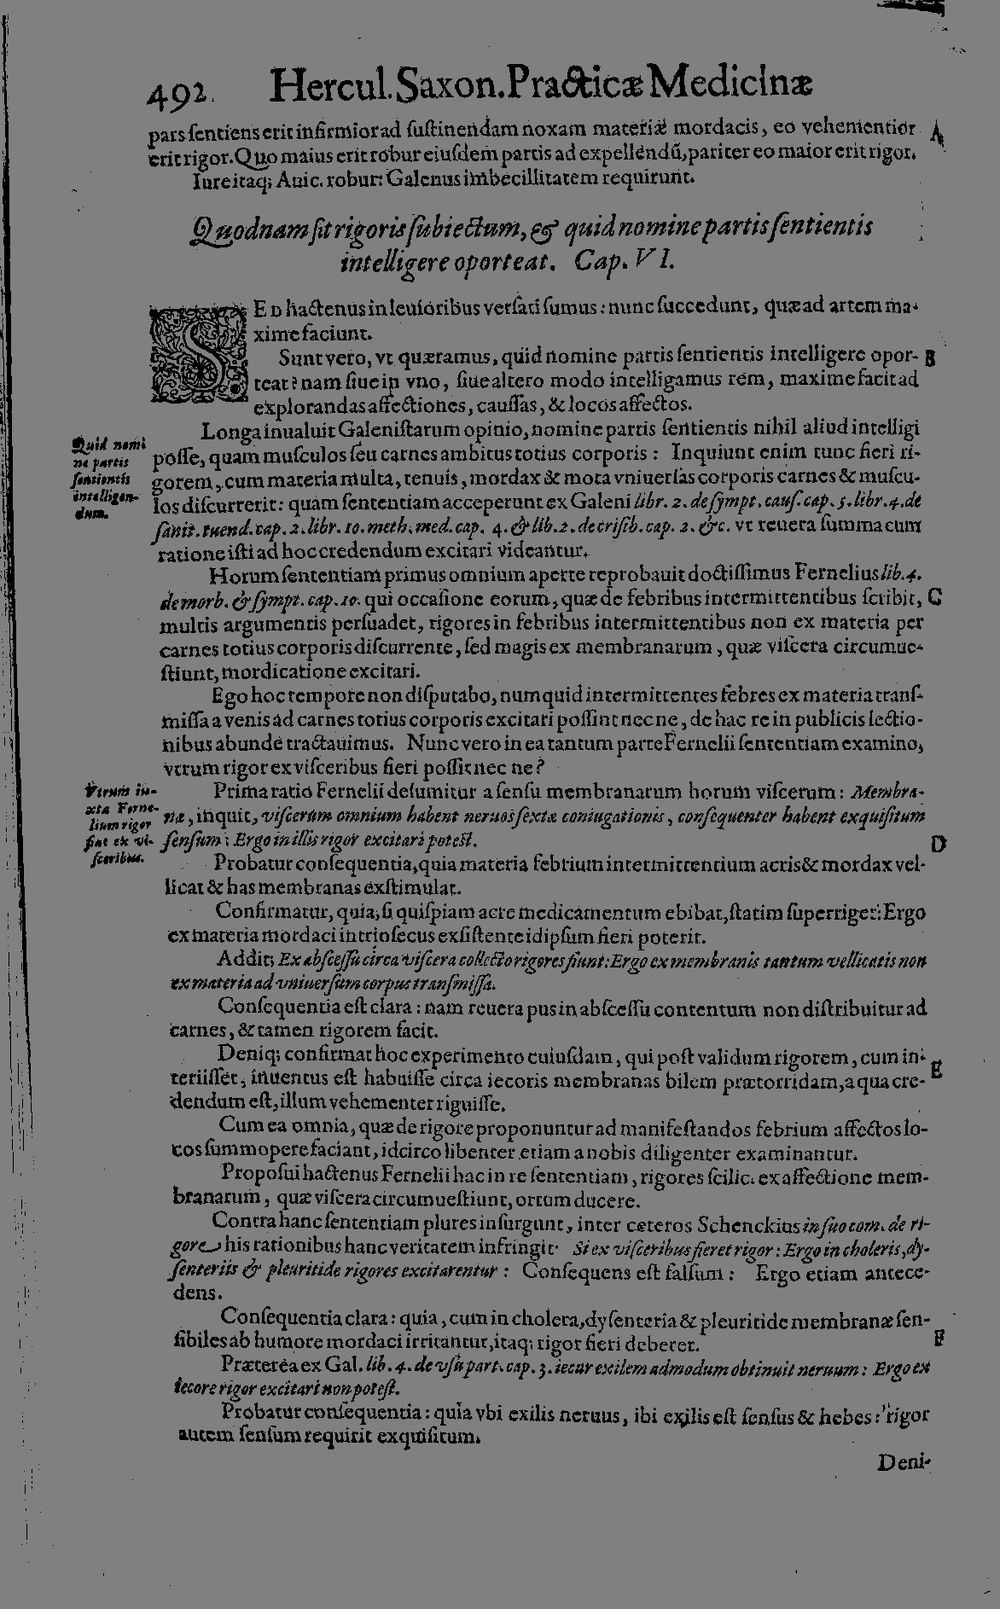 492. Hercul. Saxon. Practicæ Medicinæ
pars sentiens erit infirmior ad sustinendam noxam materiæ mordacis, eo vehementior A
erit rigor. Quo maius erit robur eiusdem partis ad expellendū, pariter eo maior erit rigor.
Iure itaq; Auic. robur: Galenus imbecillitatem requirunt.
Quodnam sit rigoris subiectum, & quid nomine partis sentientis
intelligere oporteat. Cap. VI.
SED hactenus in leuioribus versati sumus: nunc succedunt, quæ ad artem ma-
xime faciunt.
Sunt vero, vt quæramus, quid nomine partis sentientis intelligere opor- B
teat? nam siue in vno, siue altero modo intelligamus rem, maxime facit ad
explorandas affectiones, caussas, & locos affectos.
Longa inualuit Galenistarum opinio, nomine partis sentientis nihil aliud intelligi
Quid nomi
ne partis
sentientis
intelligen-
dum.
posse, quam musculos seu carnes ambitus totius corporis: Inquiunt enim tunc fieri ri-
gorem, cum materia multa, tenuis, mordax & mota vniuersas corporis carnes & muscu-
los discurrerit: quam sententiam acceperunt ex Galeni libr. 2. de sympt. caus. cap. 5. libr. 4. de
sanit. tuend. cap. 2. libr. 10. meth. med. cap. 4. & lib. 2. de crisib. cap. 2. &c. vt reuera summa cum
ratione isti ad hoc credendum excitari videantur.
Horum sententiam primus omnium aperte reprobauit doctissimus Fernelius lib. 4.
de morb. & sympt. cap. 10. qui occasione eorum, quæ de febribus intermittentibus scribit, C
multis argumentis persuadet, rigores in febribus intermittentibus non ex materia per
carnes totius corporis discurrente, sed magis ex membranarum, quæ viscera circumue-
stiunt, mordicatione excitari.
Ego hoc tempore non disputabo, numquid intermittentes febres ex materia trans-
missa a venis ad carnes totius corporis excitari possint nec ne, de hac re in publicis lectio-
nibus abunde tractauimus. Nunc vero in ea tantum parte Fernelii sententiam examino,
vtrum rigor ex visceribus fieri possit nec ne?
Vtrum iu-
xta Ferne-
lium rigor
fiat ex vi-
sceribus.
Prima ratio Fernelii desumitur a sensu membranarum horum viscerum: Membra-
næ, inquit, viscerum omnium habent neruos sextæ coniugationis, consequenter habent exquisitum
sensum: Ergo in illis rigor excitari potest. D
Probatur consequentia, quia materia febrium intermittentium acris & mordax vel-
licat & has membranas exstimulat.
Confirmatur, quia, si quispiam acre medicamentum ebibat, statim superriget: Ergo
ex materia mordaci intrinsecus exsistente id ipsum fieri poterit.
Addit; Ex abscessu circa viscera collecto rigores fiunt: Ergo ex membranis tantum vellicatis non
ex materia ad vniuersum corpus transmissa.
Consequentia est clara: nam reuera pus in abscessu contentum non distribuitur ad
carnes, & tamen rigorem facit.
Deniq; confirmat hoc experimento cuiusdam, qui post validum rigorem, cum in- E
teriisset, inuentus est habuisse circa iecoris membranas bilem prætorridam, a qua cre-
dendum est, illum vehementer riguisse.
Cum ea omnia, quæ de rigore proponuntur ad manifestandos febrium affectos lo-
cos summopere faciant, idcirco libenter etiam a nobis diligenter examinantur.
Proposui hactenus Fernelii hac in re sententiam, rigores scilic. ex affectione mem-
branarum, quæ viscera circumuestiunt, ortum ducere.
Contra hanc sententiam plures insurgunt, inter ceteros Schenckius in suo com. de ri-
gore his rationibus hanc veritatem infringit. Si ex visceribus fieret rigor: Ergo in choleris, dy-
senteriis & pleuritide rigores excitarentur: Consequens est falsum: Ergo etiam antece-
dens.
Consequentia clara: quia, cum in cholera, dysenteria & pleuritide membranæ sen-
sibiles ab humore mordaci irritantur, itaq; rigor fieri deberet. F
Præterea ex Gal. lib. 4. de vsu part. cap. 3. iecur exilem admodum obtinuit neruum: Ergo ex
iecore rigor excitari non potest.
Probatur consequentia: quia vbi exilis neruus, ibi exilis est sensus & hebes: rigor
autem sensum requirit exquisitum.
Deni-